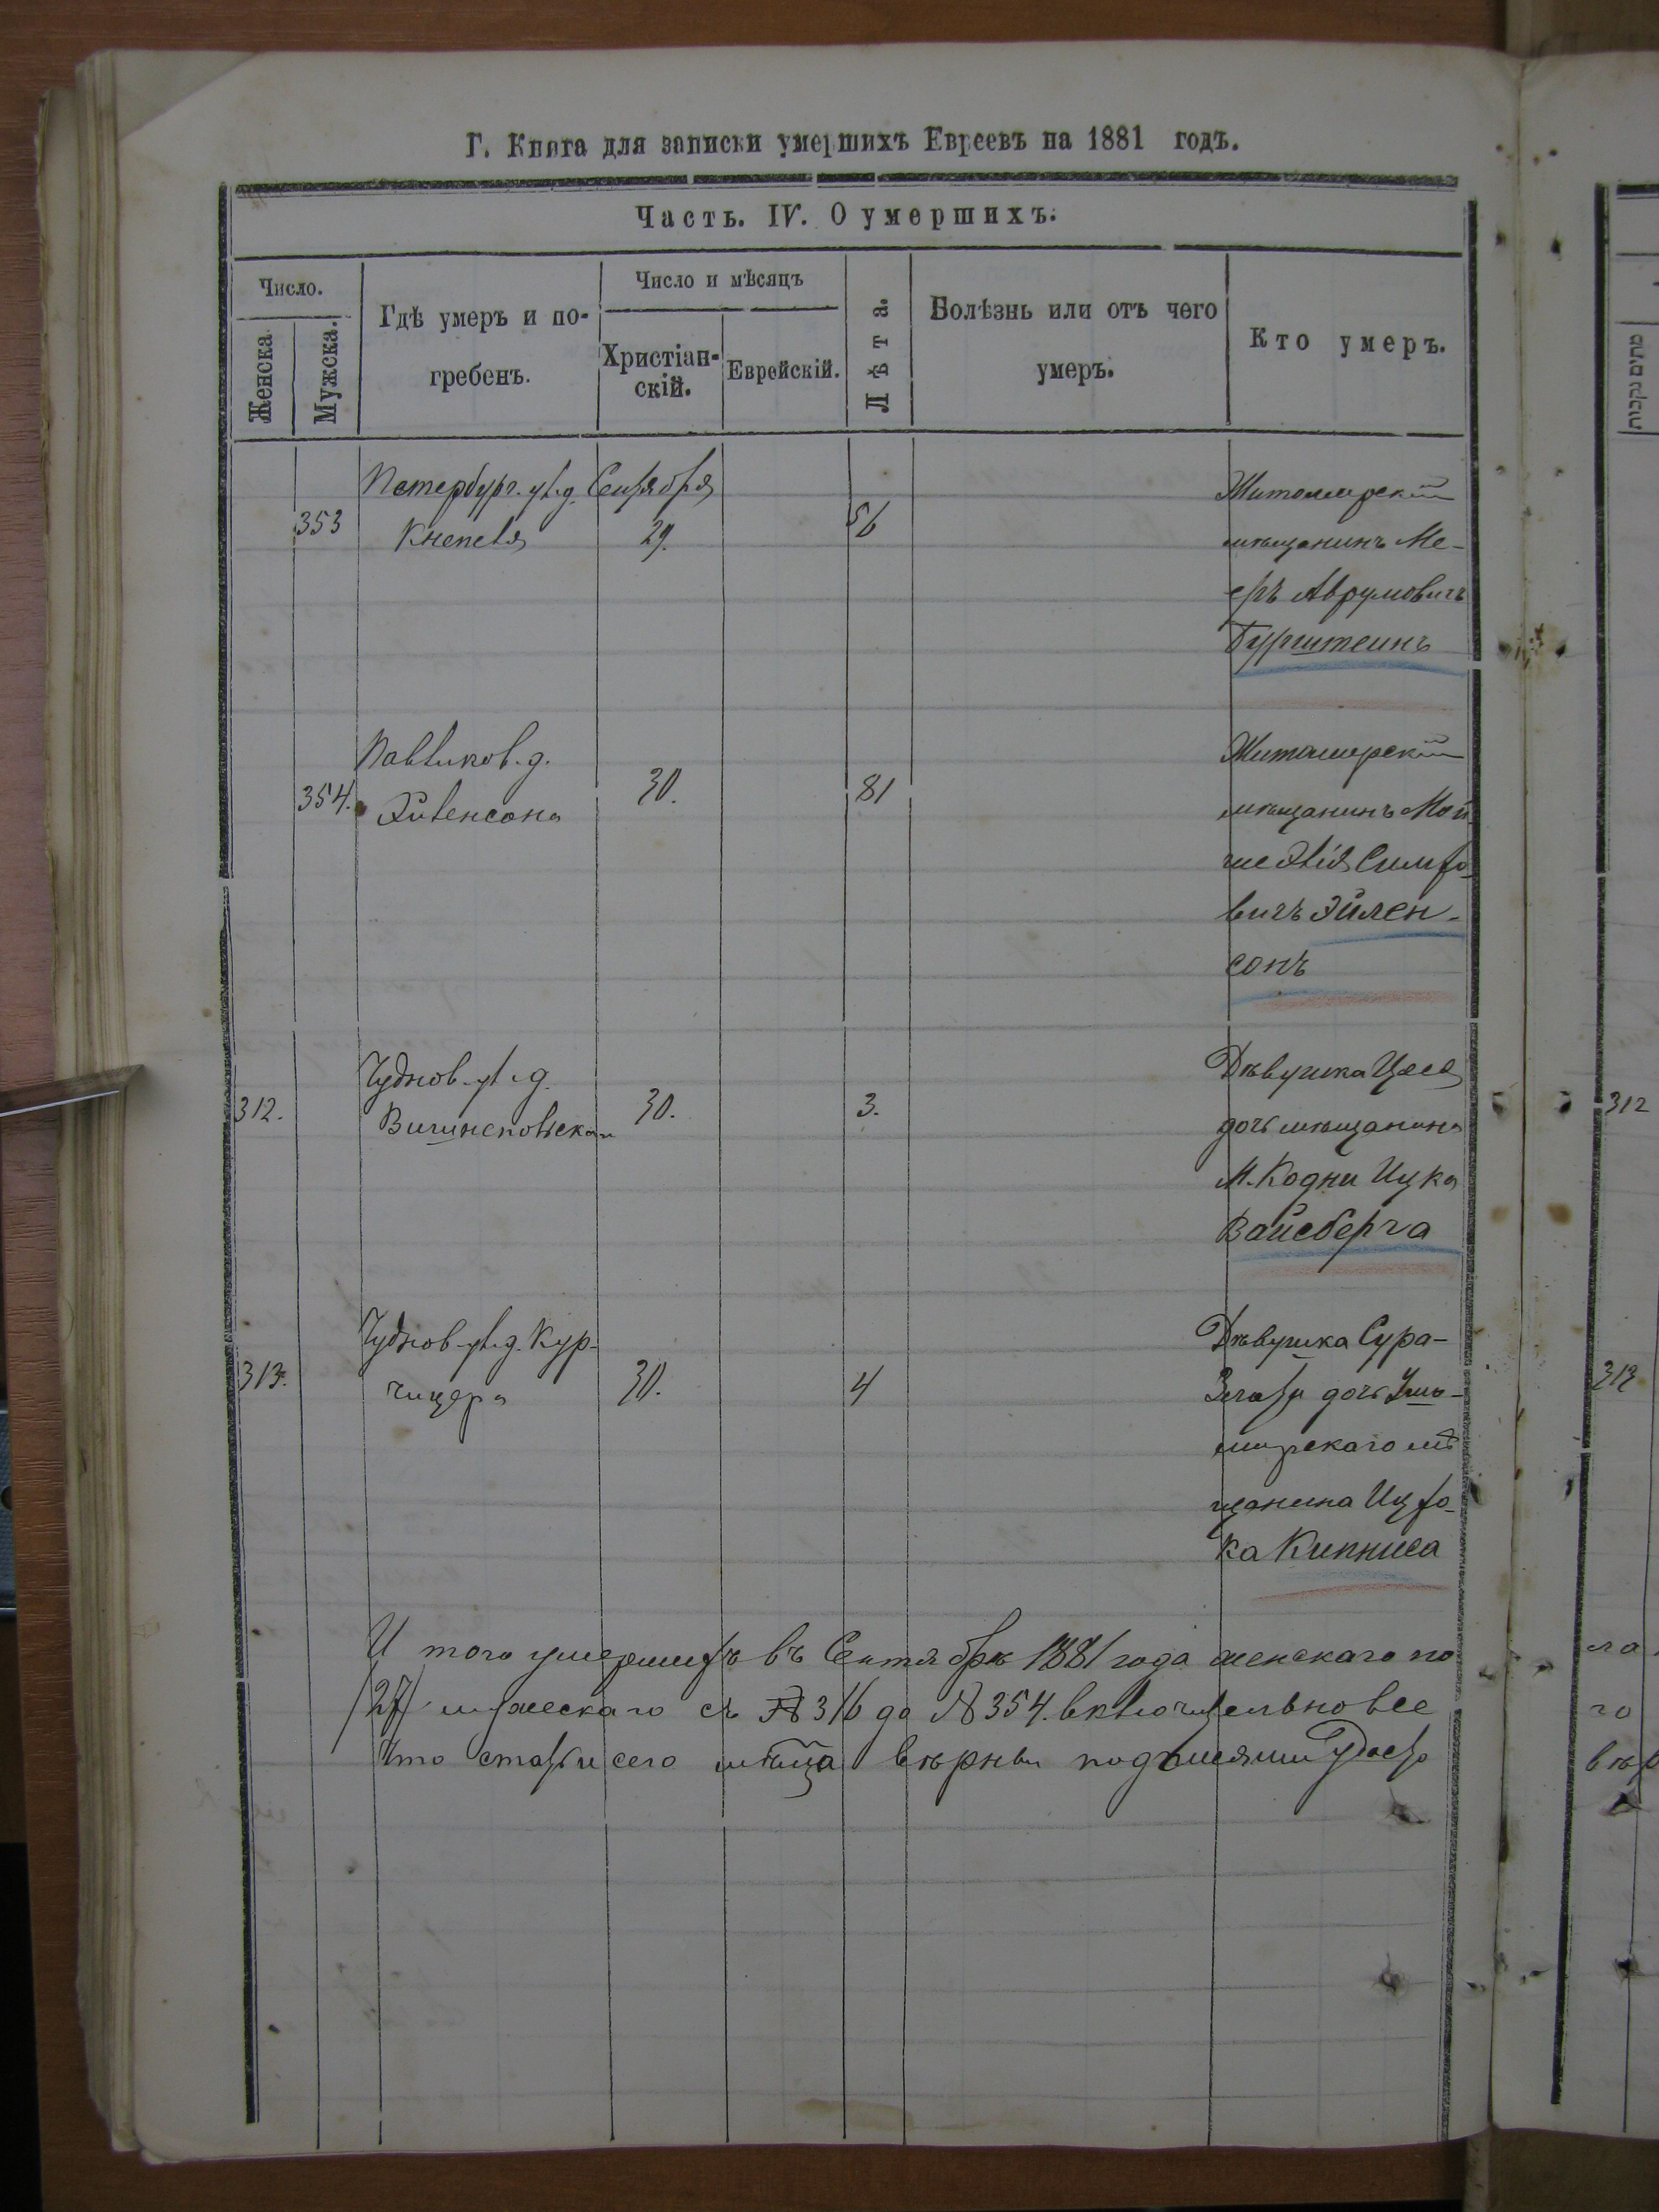 Г. Книга для записки умершихъ Евреевъ на 1881 годъ.
Часть. IV. О умершихъ.
Число.
Женска
Мужска.
Гдѣ умеръ и по-
гребенъ.
Число и мѣсяцъ
Христіан-
скій.
Еврейскій.
Лѣта.
Болѣзнь или отъ чего
умеръ.
Кто умеръ.
353
Петербург. ул. д.
Кнепеля
Сентября
29.
56
Житомирскій
мѣщанинъ Ме-
еръ Аврумовичъ
Бурштеинъ
354.
Павликов. д.
Эйленсона
30.
81
Житомирскій
мѣщанинъ Мой
ше Элія Симхо
вичъ Эйлен-
сонъ
312.
Чуднов. ул. д.
30.
3.
Дѣвушка Цася
дочь мѣщанина
М. Кодни Ицка
Вайсберга
313.
Чуднов. ул. д. Кур-
чицера
30.
4
Дѣвушка Сура-
Злата дочь
мирскаго мѣ
щанина Ицхо-
ка Кипниса
И того умершихъ въ Сентябрѣ 1881 года женскаго по
/27/ мужескаго съ № 316 до № 354. включительно все
что статьи сего мѣца вѣрны подписями
מתים נקבות
312
313
ла
го
вѣр